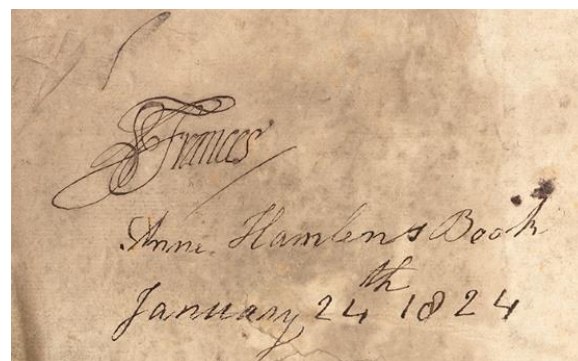 Frances
Anne Hamlens Book
January 24th 1824